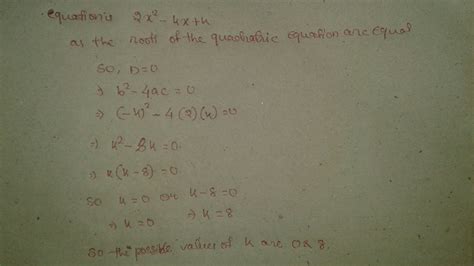 equation is 2x² - kx + k
as the roots of the quadratic equation are equal
so, D=0
⇒ b² - 4ac = 0
⇒ (-k)² - 4(2)(k) = 0
⇒ k² - 8k = 0
⇒ k(k-8) = 0
so k = 0 or k-8 = 0
⇒ k = 0 ⇒ k = 8
so the possible values of k are 0 & 8.